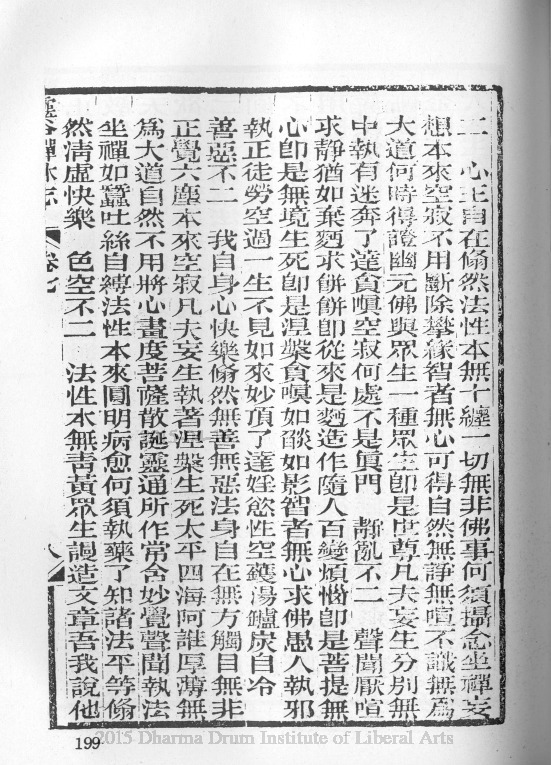 二　心王自在翛然法性本無十纏一切無非佛事何須攝念坐禪妄
想本來空寂不用斷除攀緣智者無心可得自然無諍無喧不識無為
大道何時得證幽元佛與眾生一種眾生即是世尊凡夫妄生分別無
中執有迷奔了達貪嗔空寂何處不是眞門　靜亂不二　聲聞厭喧
求靜猶如棄麪求餅餅即從來是麪造作隨人百變煩惱即是菩提無
心即是無境生死即是涅槃貪嗔如燄如影智者無心求佛愚人執邪
執正徒勞空過一生不見如來妙頂了達婬慾性空鑊湯鑪炭自冷
善惡不二　我自身心快樂翛然無善無惡法身自在無方觸目無非
正覺六塵本來空寂凡夫妄生執著涅槃生死太平四海阿誰厚薄無
為大道自然不用將心畫度菩薩散誕靈通所作常含妙覺聲聞執法
坐禪如蠶吐絲自縛法性本來圓明病愈何須執藥了知諸法平等翛
然淸虛快樂　色空不二　法性本無靑黃眾生謾造文章吾我說他
雲谷禪林志　卷七　八
199
2015 Dharma Drum Institute of Liberal Arts